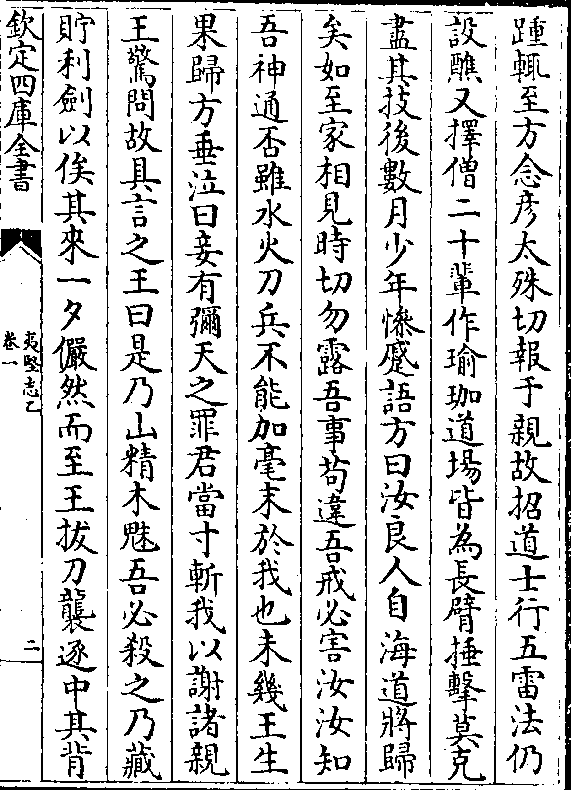 踵輒至方念彦太殊切報于親故招道士行五雷法仍
設醮又擇僧二十輩作瑜珈道場皆為長臂捶擊莫克
盡其技後數月少年慘蹙語方曰汝良人自海道將歸
矣如至家相見時切勿露吾事苟違吾戒必害汝汝知
吾神通否雖水火刀兵不能加毫末於我也未幾王生
果歸方垂泣曰妾有彌天之罪君當寸斬我以謝諸親
王驚問故具言之王曰是乃山精木魅吾必殺之乃藏
貯利劍以俟其來一夕儼然而至王拔刀襲逐中其背
欽定四庫全書
夷堅志乙
卷一
二